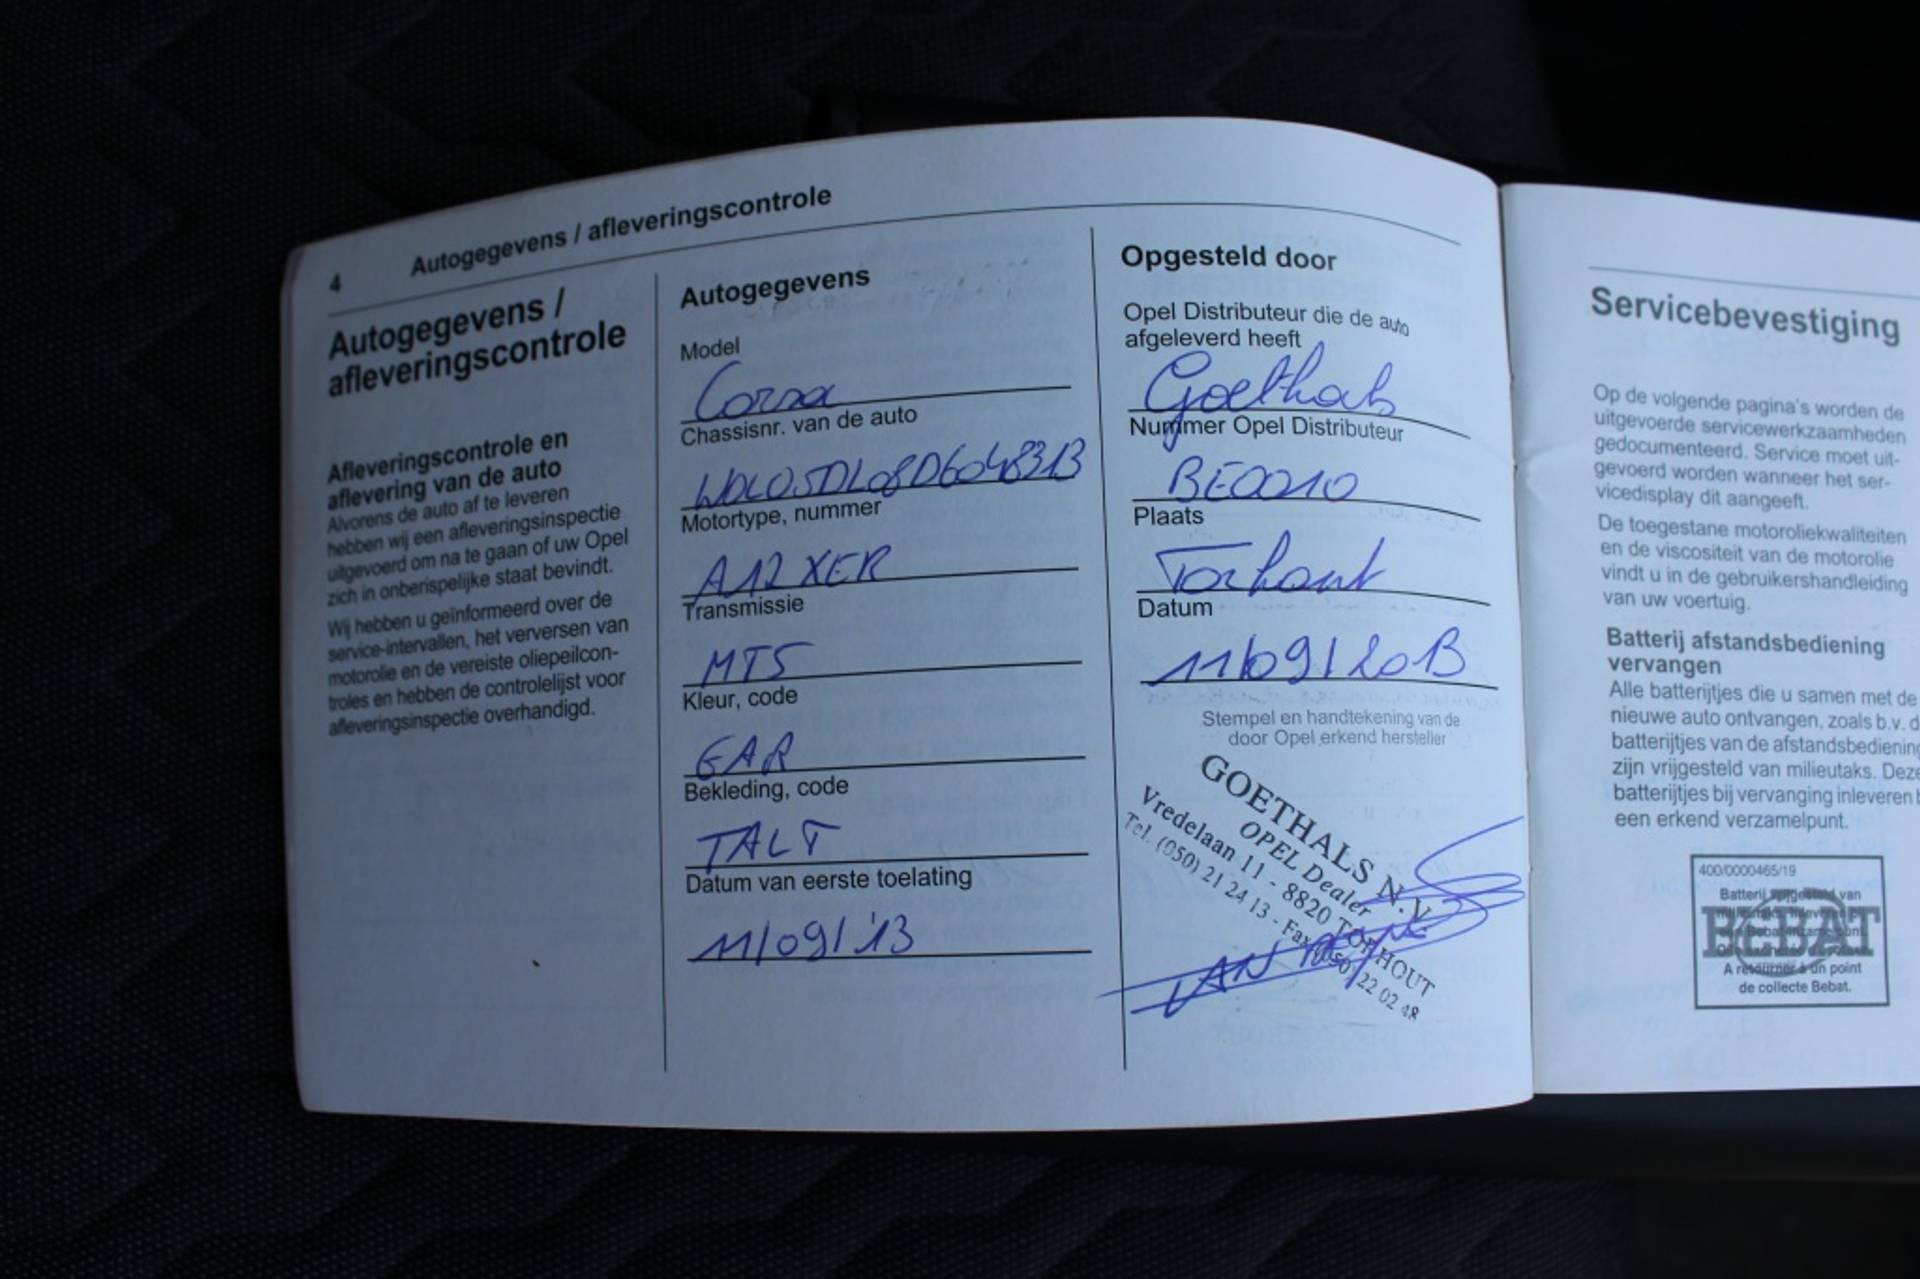 4 Autogegevens / afleveringscontrole
Autogegevens /
afleveringscontrole
Afleveringscontrole en
aflevering van de auto
Alvorens de auto af te leveren
hebben wij een afleveringsinspectie
uitgevoerd om na te gaan of uw Opel
zich in onberispelijke staat bevindt.
Wij hebben u geïnformeerd over de
service-intervallen, het verversen van
motorolie en de vereiste oliepeilcon-
troles en hebben de controlelijst voor
afleveringsinspectie overhandigd.
Autogegevens
Model
Corsa
Chassisnr. van de auto
W0L0SDL08D6048313
Motortype, nummer
A12XER
Transmissie
MT5
Kleur, code
GAR
Bekleding, code
TALT
Datum van eerste toelating
11/09/'13
Opgesteld door
Opel Distributeur die de auto
afgeleverd heeft
Goethals
Nummer Opel Distributeur
BE0010
Plaats
Torhout
Datum
11/09/2013
Stempel en handtekening van de
door Opel erkend hersteller
GOETHALS N.V.
OPEL Dealer
Vredelaan 11 - 8820 TORHOUT
Tel. (050) 21 24 13 - Fax (050) 22 02 48
JAN
Servicebevestiging
Op de volgende pagina's worden de
uitgevoerde servicewerkzaamheden
gedocumenteerd. Service moet uit-
gevoerd worden wanneer het ser-
vicedisplay dit aangeeft.
De toegestane motoroliekwaliteiten
en de viscositeit van de motorolie
vindt u in de gebruikershandleiding
van uw voertuig.
Batterij afstandsbediening
vervangen
Alle batterijtjes die u samen met de
nieuwe auto ontvangen, zoals b.v. d
batterijtjes van de afstandsbediening
zijn vrijgesteld van milieutaks. Deze
batterijtjes bij vervanging inleveren b
een erkend verzamelpunt.
400/0000465/19
Batterij vrijgesteld van
BEBAT
A retourner à un point
de collecte Bebat.